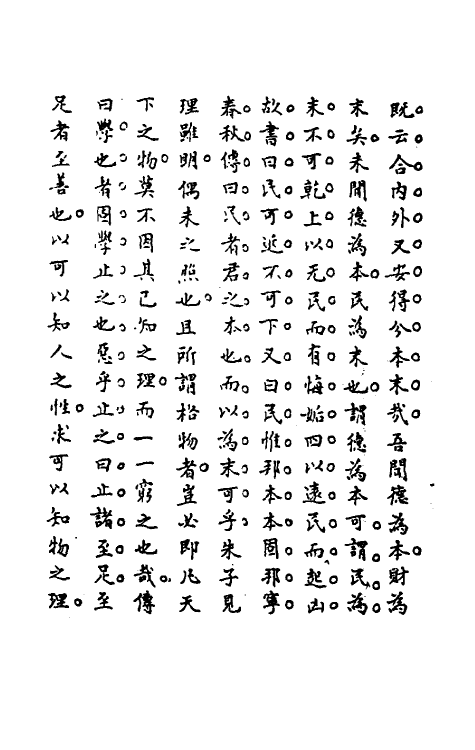 既云合内外又安得分本末哉吾聞德為本財為
末矣未聞德為本民為末也謂德為本可謂民為
末不可乾上以无民而有悔姤四以遠民而起凶
故書曰民可近不可下又曰民惟邦本本固邦寧
春秋傳曰民者君之本也而以為末可乎朱子見
理雖明偶未之照也且所謂格物者豈必即凡天
下之物莫不因其已知之理而一一窮之也哉傳
曰學也者固學止之也惡乎止之曰止諸至足至
足者至善也以可以知人之性求可以知物之理